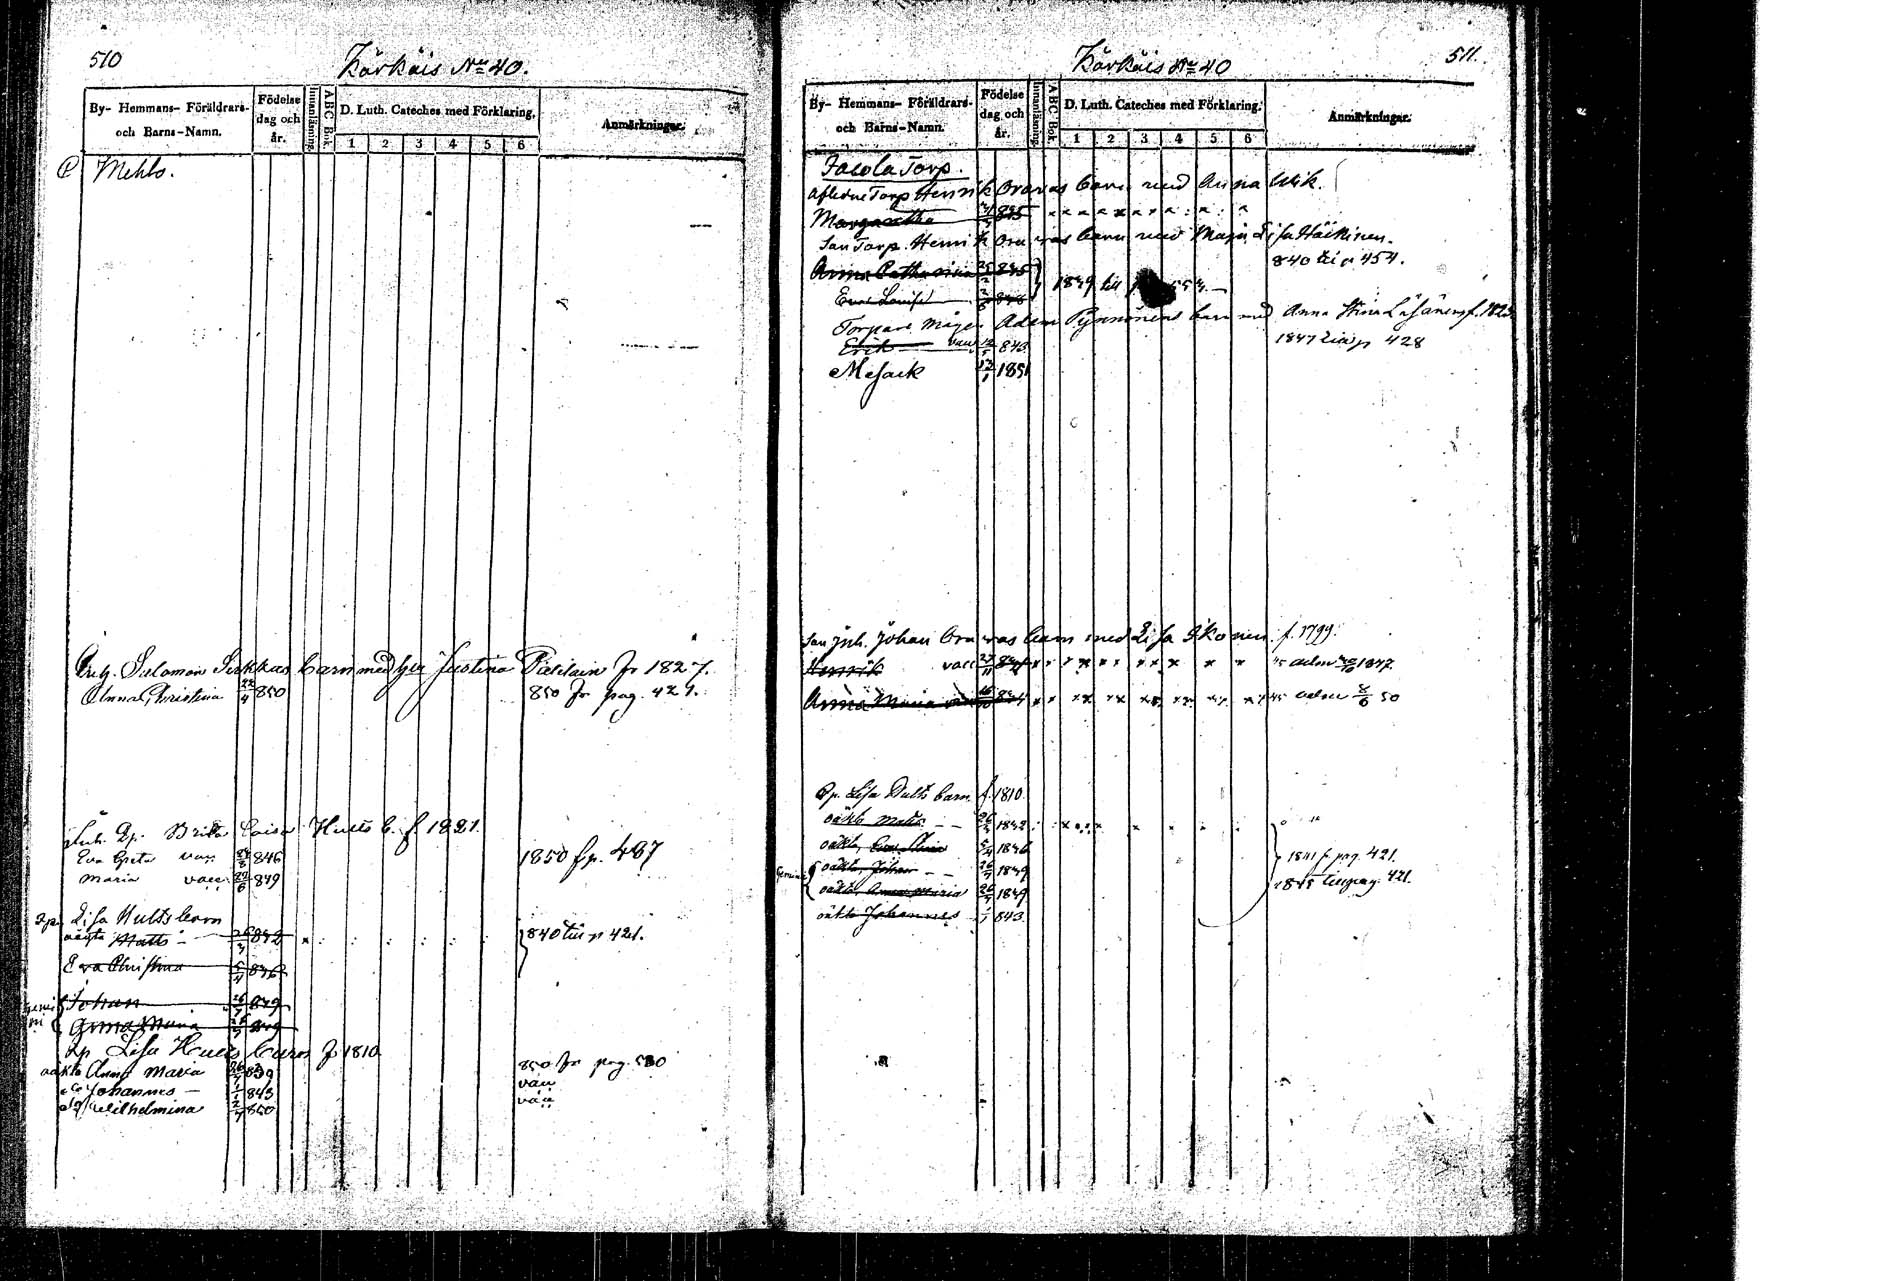 510
Kärkäis No 40.
By- Hemmans- Föräldrars- och Barns-Namn.
Födelse dag och år.
Innanläsning.
A B C Bok.
D. Luth. Cateches med Förklaring.
1 2 3 4 5 6
Anmärkningar.
Mehlo.
Inh. Salomon Sirkkas barn med hu Justina f. 1827.
Anna Christina 22/4 850 850 fr pag. 421.
Inh. Qp. Brita Caisa Hults b. f. 1821.
Eva Greta vac. 846 1850 fr p. 467
Maria vacc. 849
Qp. Lisa Hults barn
oäkta Matts 26/3 832 840 till p 421.
Eva Christina 5/4 836
Gemini
Johan 26/7 839
Anna Maria 26/7 839
Qp Lisa Hults barn f 1810
oäkta Anna Maria 26/7 839 850 fr pag. 530
Johannes 1/1 843 vacc
Wilhelmina 2/7 850 vacc
511.
Kärkäis No 40
By- Hemmans- Föräldrars- och Barns-Namn.
Födelse dag och år.
Innanläsning.
A B C Bok.
D. Luth. Cateches med Förklaring.
1 2 3 4 5 6
Anmärkningar.
Jacola Torp.
Aflidne Torp Henrik Oravas barn med Anna Ulrik.
Margaretha 835
Son Torp. Henrik Oravas barn med Maja Lisa Häkkinen.
840 till p 454.
Anna Catharina 835
1849 till p
Eva Lovisa 838
Torpare mågen Adam Pynnönens barn med Anna Stina Läsänen f. 1823
Erik vacc 12/5 843 1847 till p 428
Mesack 12/1 1851
Son Inh. Johan Oravas barn med Lisa Ikonen f. 1799.
Henrik vacc 27/11 1847.
Anna Maria 8/6 50
Qp. Lisa Hults barn f. 1810
oäkta Matts 26/3 1832
oäkta, Eva Stina 5/4 1836 1841 fr pag. 421.
Gemini
oäkta, Johan 26/7 1839
1845 till pag. 421.
oäkta, Anna Maria 26/7 1839
oäkta Johannes 1/1 843